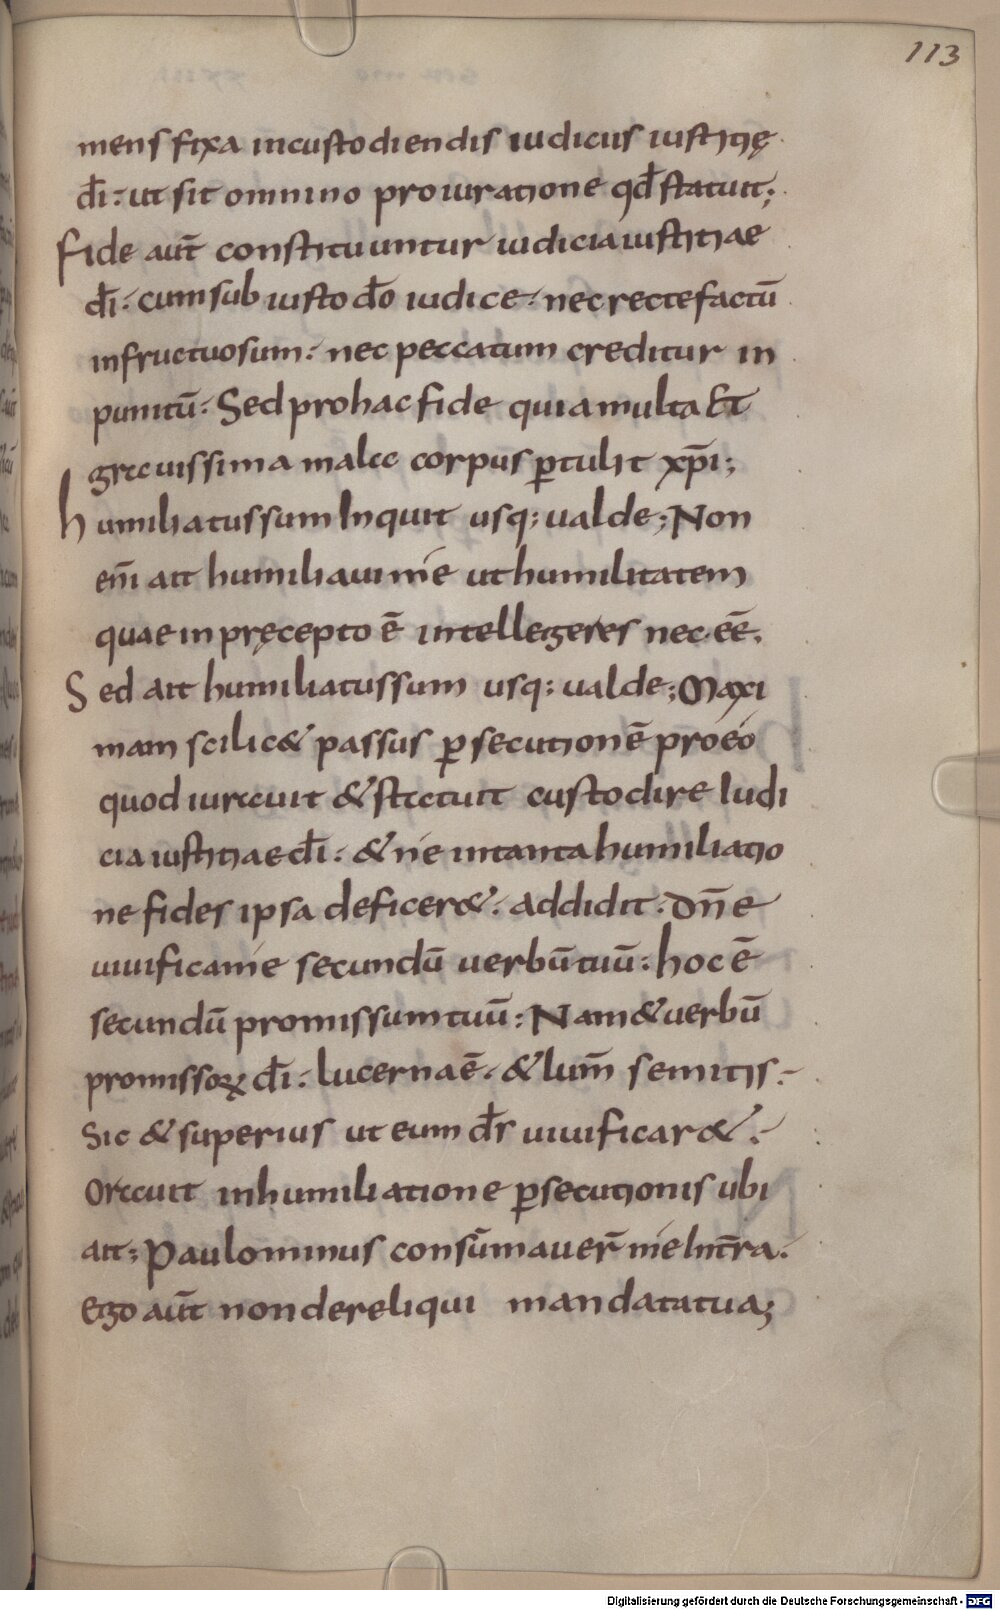 113
mens fixa incustodiendis iudiciis iustitię
dī: ut sit omnino pro iuratione qđ statuit;
Fide aūt constituuntur iudicia iustitiae
dī: cum sub iusto dō iudice: nec recte factū
infructuosum: nec peccatum creditur in
punitū: Sed pro hac fide quia multa Et
grauissima mala corpus ꝑtulit xp̄i;
humiliatus sum Inquit usq; ualde; Non
eni̅ ait humiliaui me ut humilitatem
quae in pręcepto ē intellegeres nec eē.
Sed ait humiliatus sum usq; ualde; Maxi
mam scilic& passus ꝑsecutionē pro eo
quod iurauit & statuit custodire Iudi
cia iustitiae dī: & ne in tanta humiliatio
ne fides ipsa deficer&: addidit. dn̄e
uiuifica me secundū uerbū tuū: hoc ē
secundū promissum tuū: Nam & uerbū
promissoꝝ dī: lucerna ē. & lum̄ semitis:
Sic & superius ut eum d̄s uiuificar&:
Orauit in humiliatione ꝑsecutionis ubi
ait; Paulominus consūmauer̄ me In t̄ra.
Ego aūt non dereliqui mandata tua;
Digitalisierung gefördert durch die Deutsche Forschungsgemeinschaft - DFG